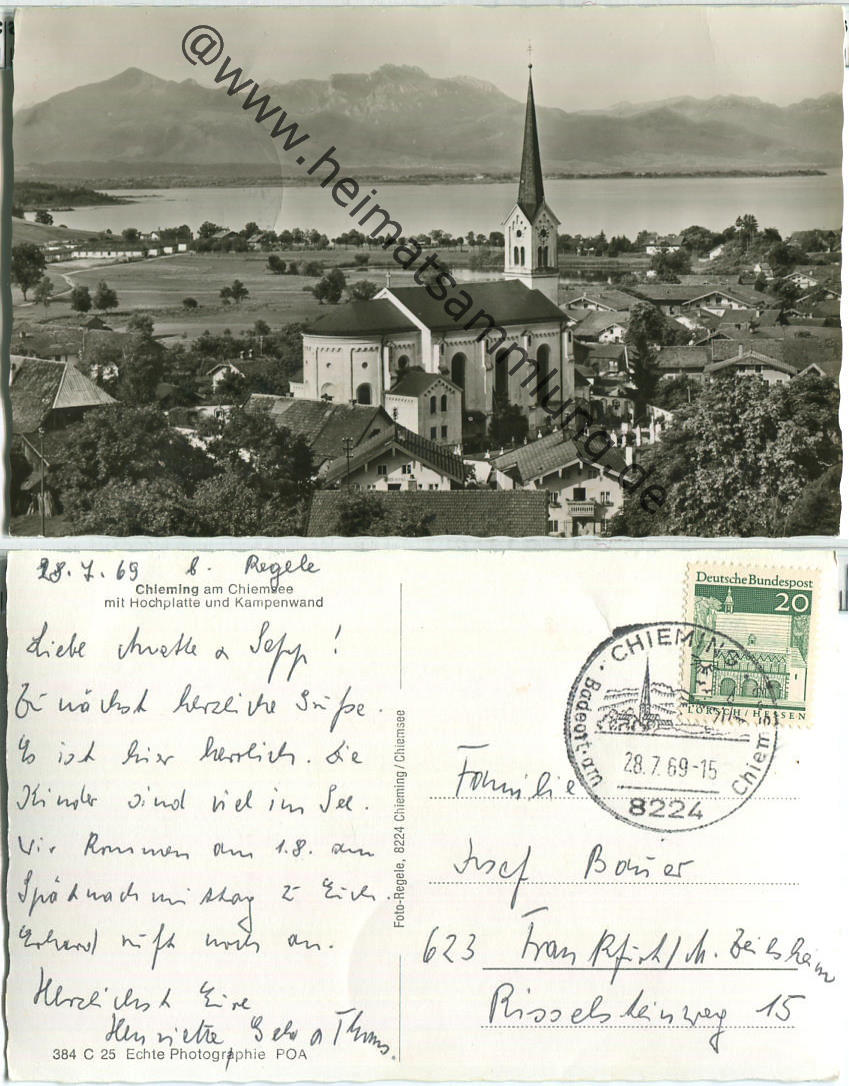 @www.heimatsammlung.de
28.7.69 b. Regele
Chieming am Chiemsee
mit Hochplatte und Kampenwand
Liebe Anette u Sepp!
Zunächst herzliche Grüße.
Es ist hier herrlich. Die
Kinder sind viel im See.
Wir kommen am 1.8. am
Spätnachmittag z Euch.
Erhard ruft noch an.
Herzlichst Eure
Henriette u Thomas.
384 C 25 Echte Photographie POA
Foto-Regele, 8224 Chieming/Chiemsee
Deutsche Bundespost
20
LORSCH/HESSEN
CHIEMING
Badeort am Chiemsee
28.7.69-15
8224
Familie
Josef Bauer
623 Frankfurt/M. Zeilsheim
Risselsteinweg 15